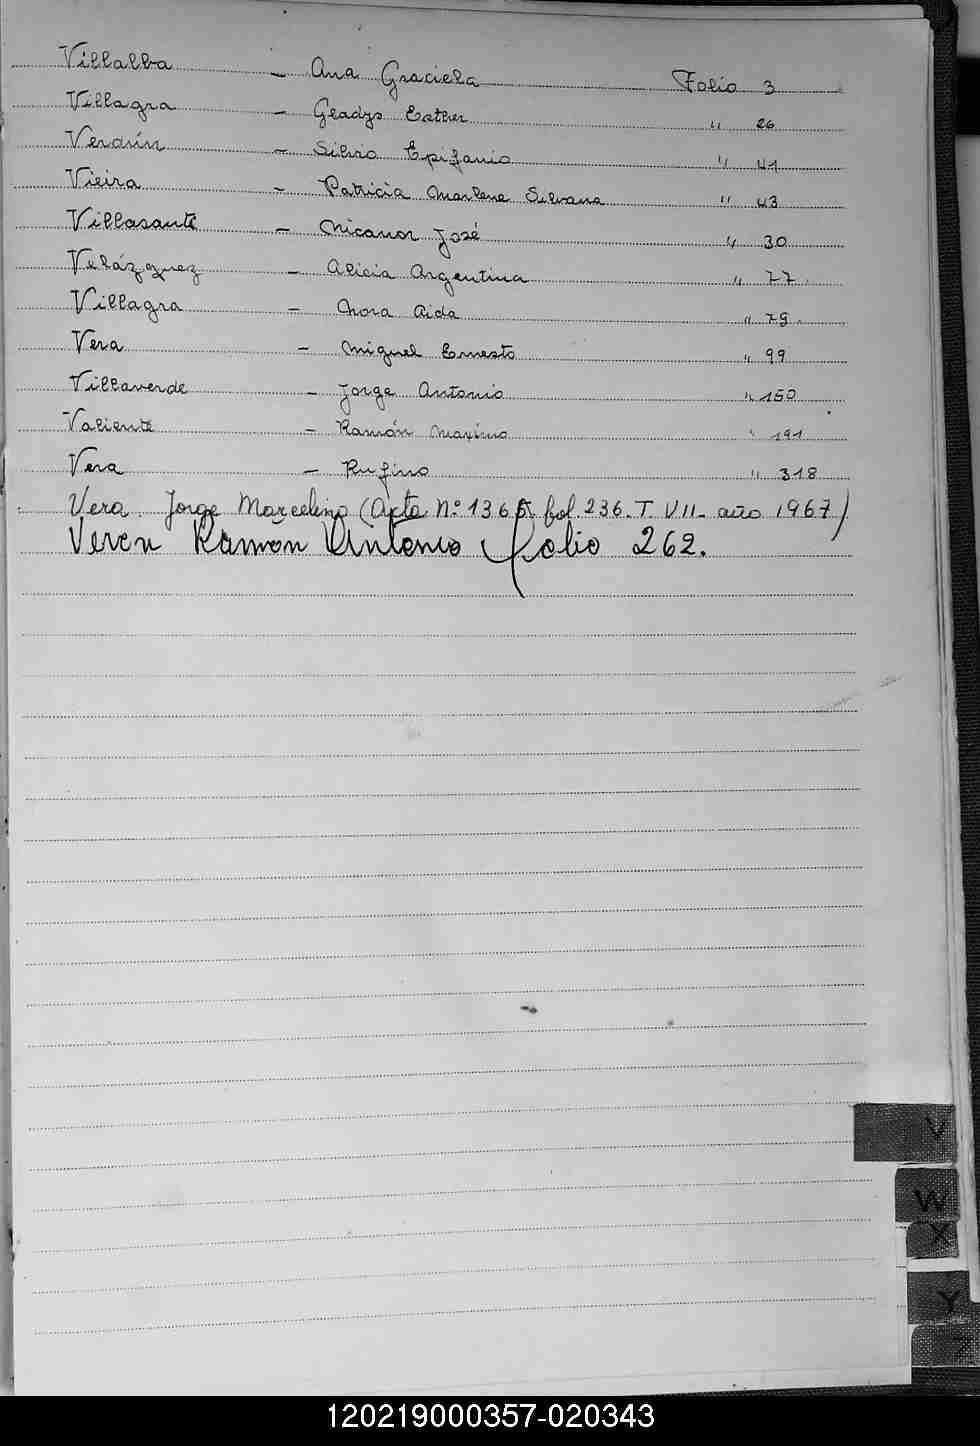 Villalba - Ana Graciela Folio 3
Villagra - Gladys Esther " 26
Verdún - Silvio Epifanio " 41
Vieira - Patricia Marlene Silvana " 43
Villasanté - Nicanor José " 30
Velázquez - Alicia Argentina " 77
Villagra - Nora Aida " 79
Vera - Miguel Ernesto " 99
Villaverde - Jorge Antonio " 150
Valiente - Ramón Maximo " 191
Vera - Rufino " 318
Vera Jorge Marcelino (Acta Nº 1365 fol. 236. T. VII - año 1967)
Veron Ramon Antonio folio 262.
V
W
X
Y
Z
120219000357-020343